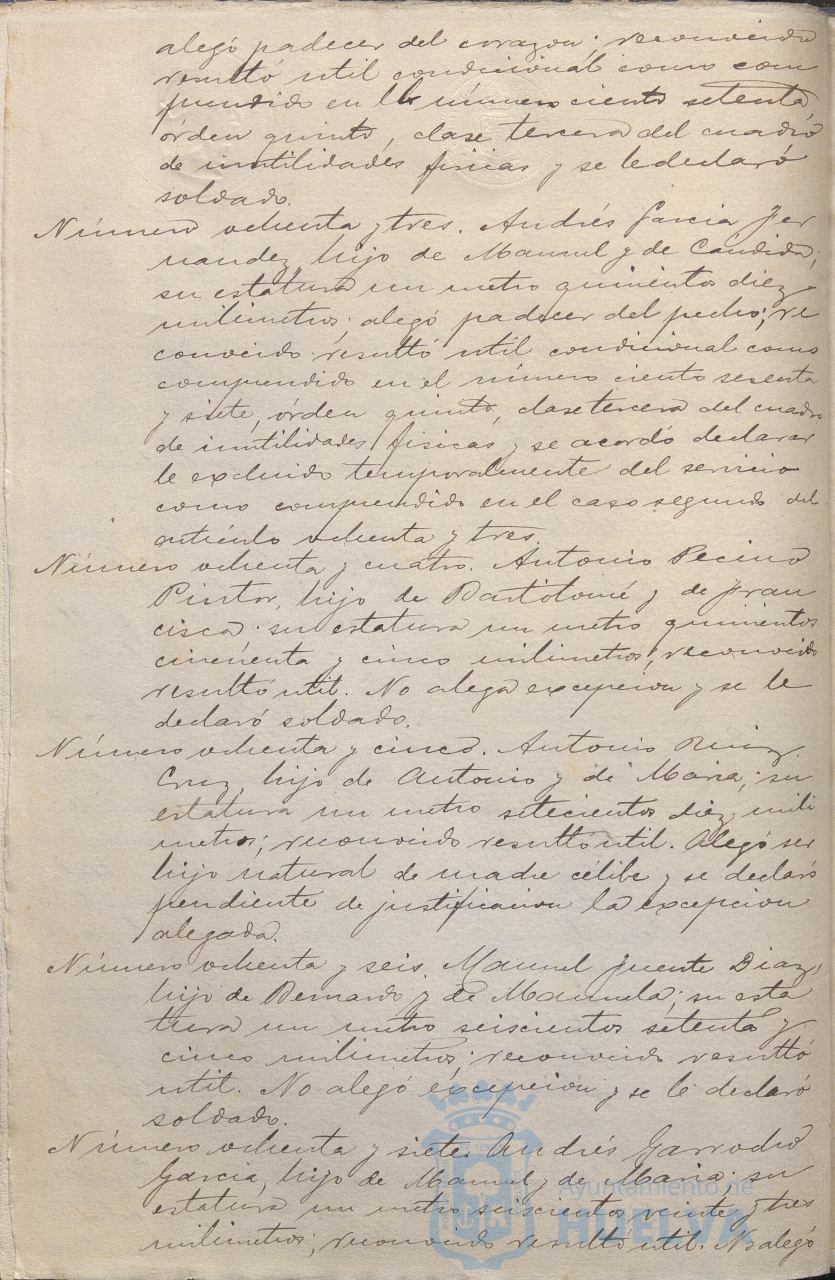 alegó padecer del corazon; reconocido
resultó util condicional como com
prendido en el número ciento setenta,
órden quinto, clase tercera del cuadro
de inutilidades fisicas y se le declaró
soldado.
Número ochenta y tres. Andrés Garcia Fer
nandez, hijo de Manuel y de Candida;
su estatura un metro quinientos diez
milimetros; alegó padecer del pecho; re
conocido resultó util condicional como
comprendido en el número ciento sesenta
y siete, órden quinto, clase tercera del cuadro
de inutilidades fisicas y se acordó declarar
le excluido temporalmente del servicio
como comprendido en el caso segundo del
artículo ochenta y tres.
Número ochenta y cuatro. Antonio Pecino
Pintor, hijo de Bartolomé y de Fran
cisca: su estatura un metro quinientos
cincuenta y cinco milimetros; reconocido
resultó util. No alega excepcion y se le
declaró soldado.
Número ochenta y cinco. Antonio Ruiz
Cruz, hijo de Antonio y de Maria; su
estatura un metro setecientos diez mili
metros; reconocido resultó util. Alegó ser
hijo natural de madre célibe y se declaró
pendiente de justificacion la excepcion
alegada.
Número ochenta y seis. Manuel Fuente Diaz,
hijo de Bernardo y de Manuela; su esta
tura un metro seiscientos setenta y
cinco milimetros; reconocido resultó
util. No alegó excepcion y se le declaró
soldado.
Número ochenta y siete. Andrés Garrocho
Garcia, hijo de Manuel y de Maria: su
estatura un metro seiscientos veinte y tres
milimetros; reconocido resultó util. No alegó
Ayuntamiento de
HUELVA